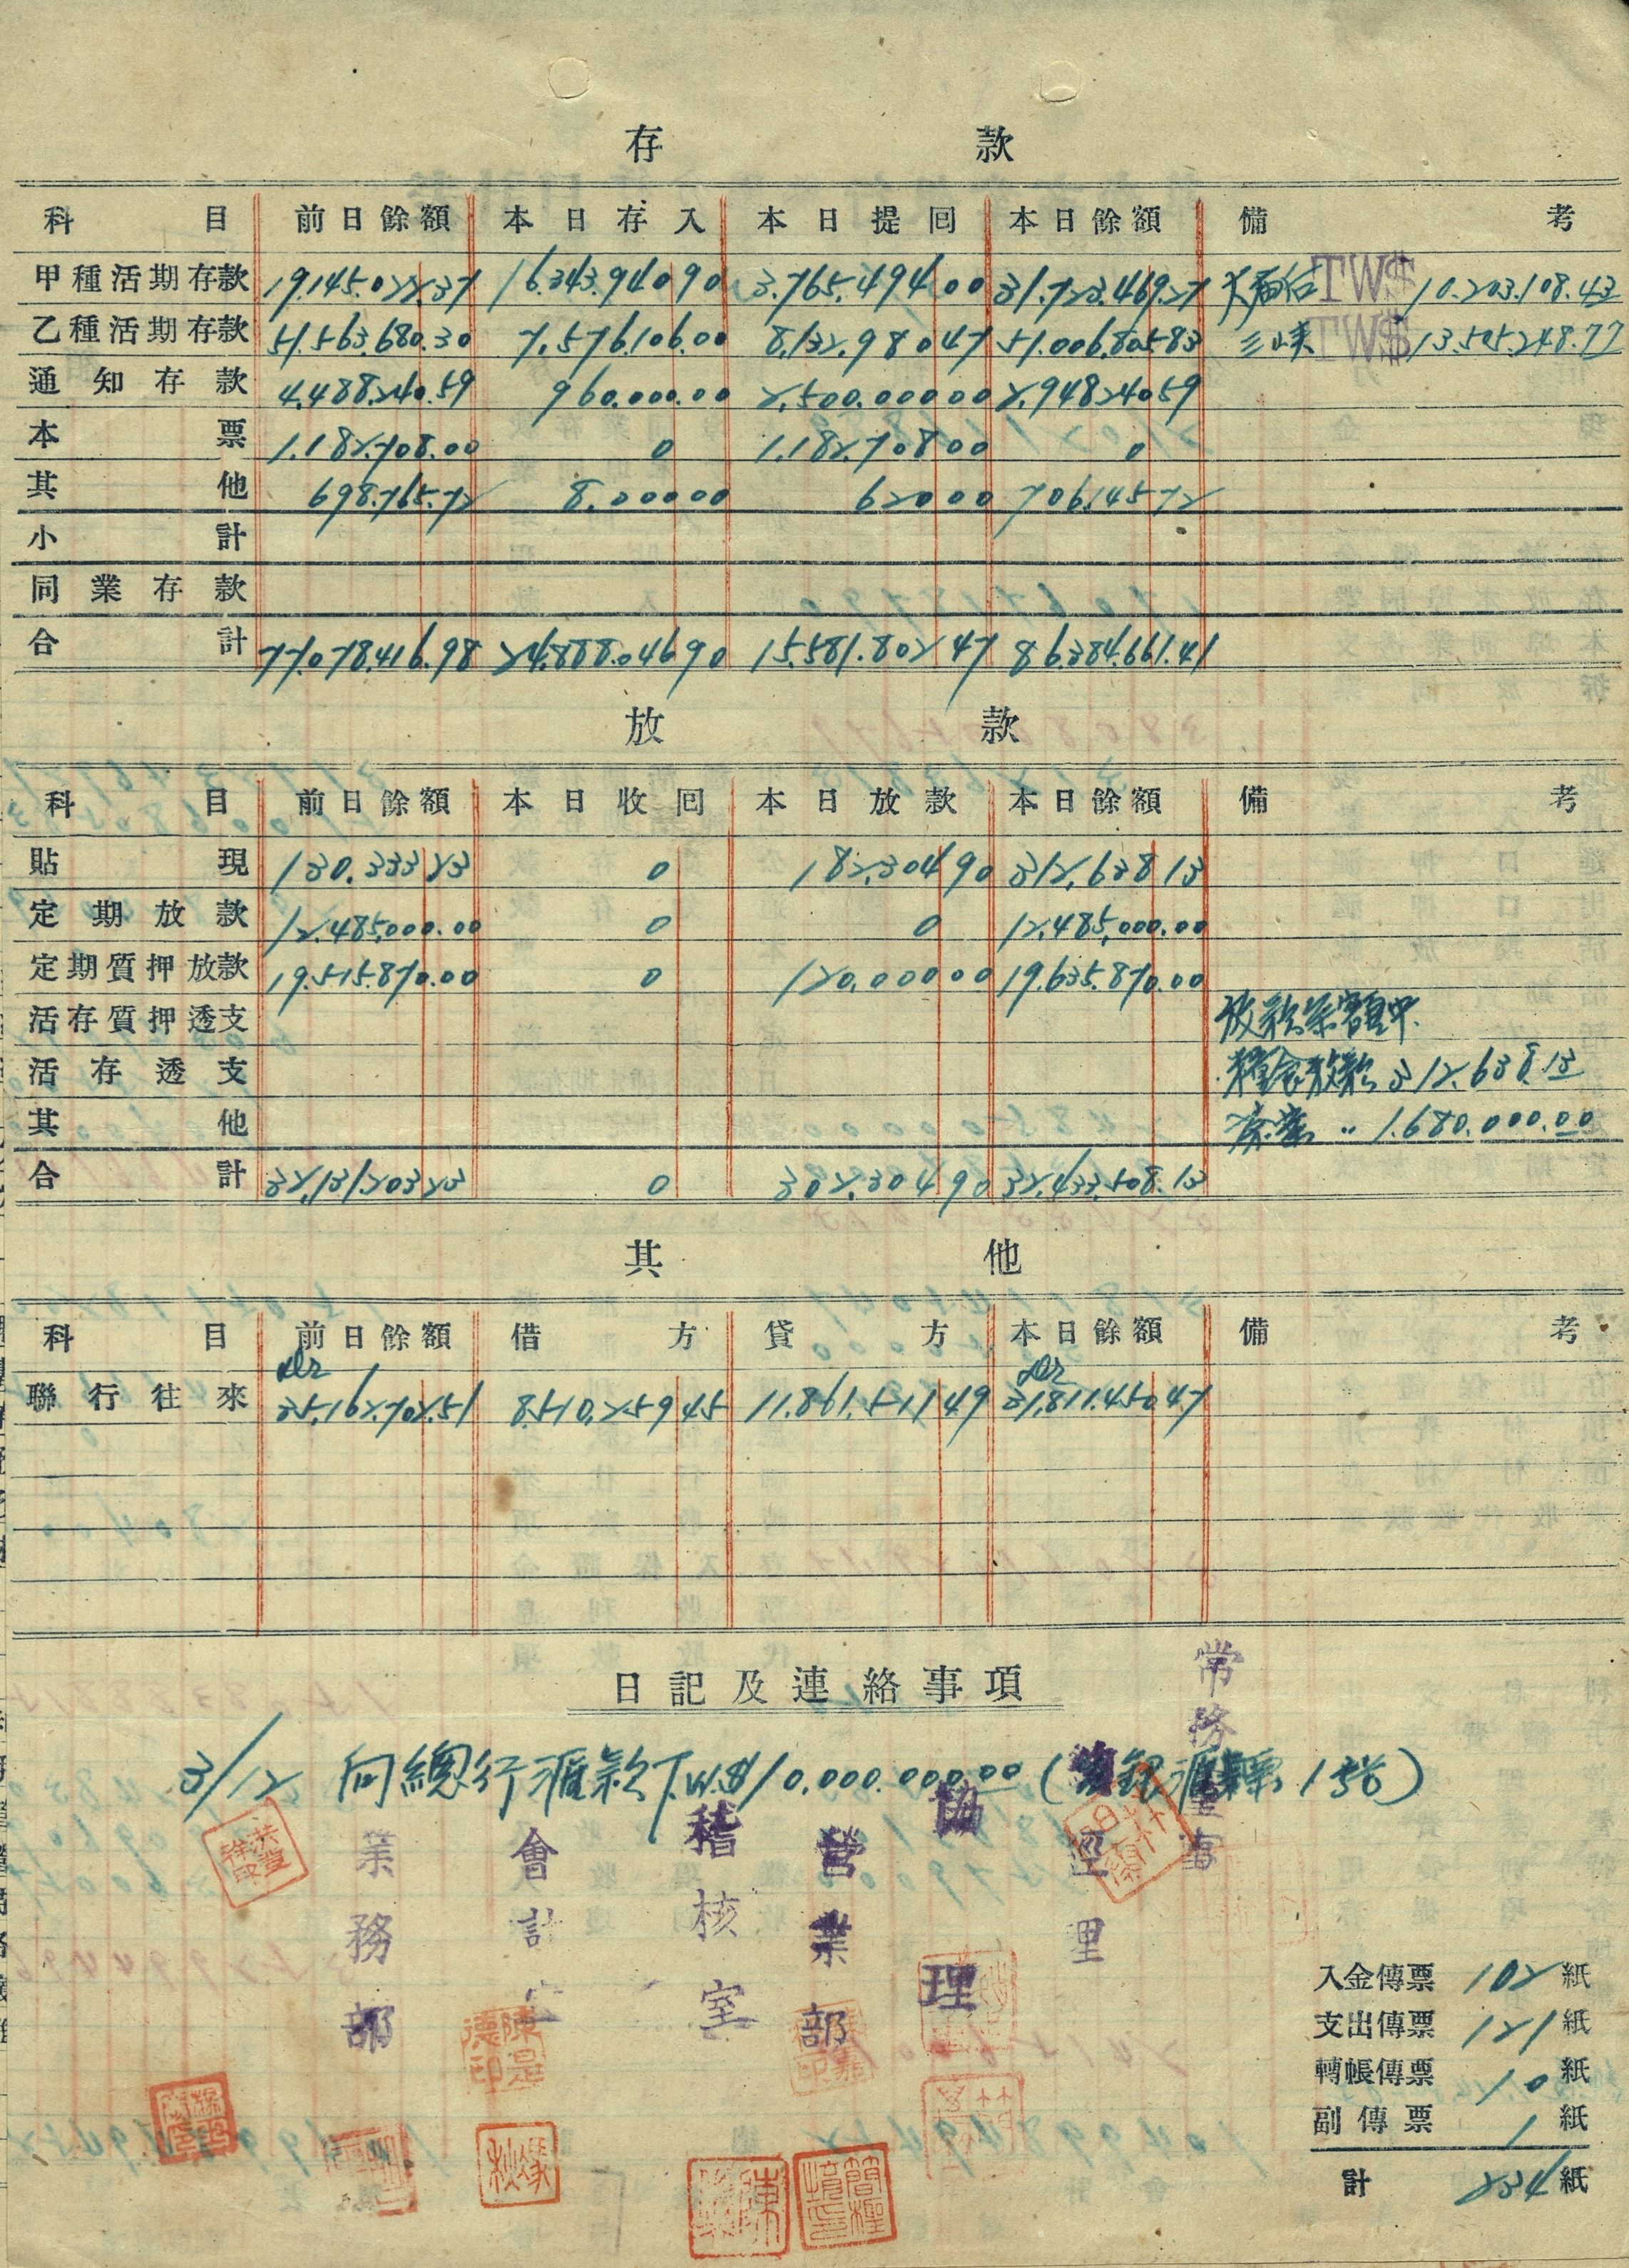 存款
科目 前日餘額 本日存入 本日提回 本日餘額 備考
甲種活期存款 19.145.022.37 16.343.940 90 3.765.494 00 31.723.469.27 TW$ 10.203.108.43
乙種活期存款 51.563.680.30 7.576.106.00 8.132.980 47 51.006.805 83 三峽 TW$ 13.505.248.77
通知存款 4.488.240.59 960.000.00 2.500.000 00 2.948.240 59
本票 1.182.708.00 0 1.182.708 00 0
其他 698.765.72 8.000 00 620 00 706.145 72
小計
同業存款
合計 77.078.416.98 24.888.046 90 15.581.802 47 86.384.661.41
放款
科目 前日餘額 本日收回 本日放款 本日餘額 備考
貼現 130.333 23 0 182.304 90 312.638 13
定期放款 12.485.000.00 0 0 12.485.000.00
定期質押放款 19.515.870.00 0 120.000 00 19.635.870.00
活存質押透支 放款餘額中
活存透支 放款 312.638.13
其他 〃 1.680.000.00
合計 32.131.203 23 0 302.304.90 32.433.508.13
其他
科目 前日餘額 借方 貸方 本日餘額 備考
Dr Dr
聯行往來 35.162.702.51 8.510.259 45 11.861.511 49 31.811.450 47
日記及連絡事項
3/12 向總行滙款TW$10.000.000.00
常務董事
經理
協理
營業部
稽核室
會計室
業務部
入金傳票 102 紙
支出傳票 121 紙
轉帳傳票 10 紙
副傳票 1 紙
計 234 紙